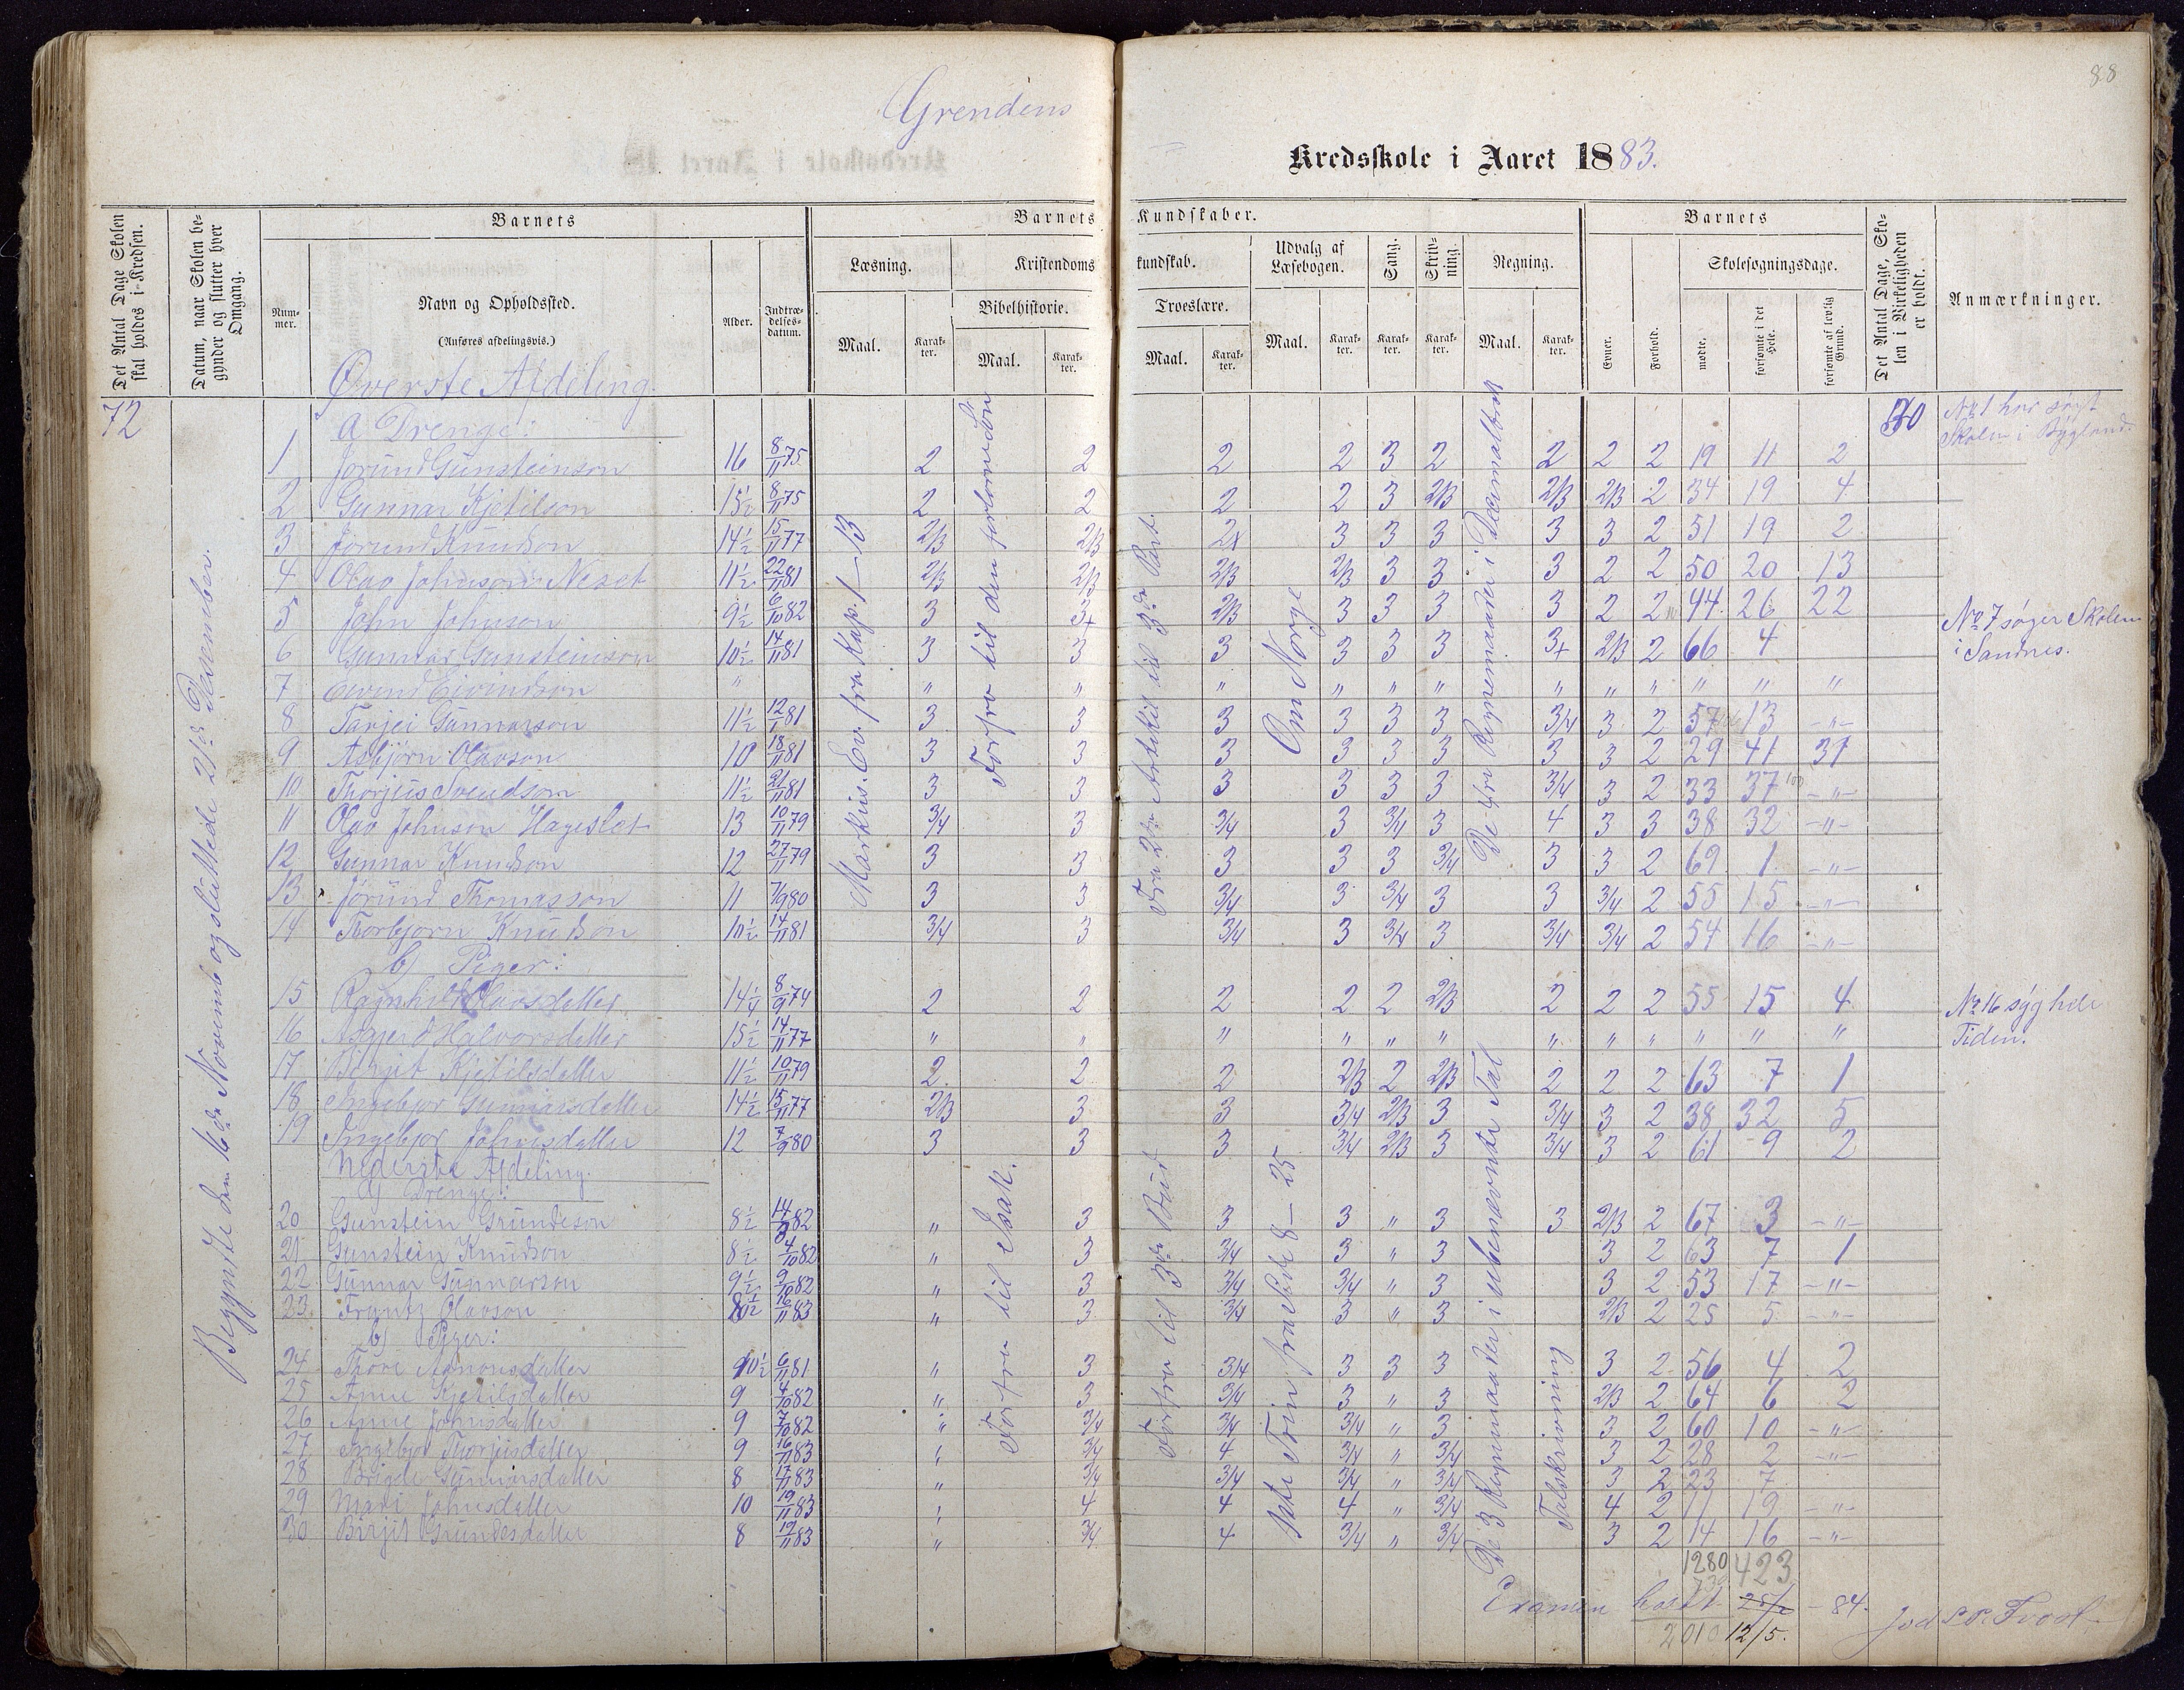 88
Grendens
Kredsskole i Aaret 1883.
Det Antal Dage Skolen skal holdes i Kredsen.
Datum, naar Skolen begynder og slutter hver Omgang.
Barnets
Barnets
Kundskaber.
Barnets
Det Antal Dage, Skolen i Virkeligheden er holdt.
Anmærkninger.
Læsning.
Kristendoms
kundskab.
Udvalg af Læsebogen.
Sang.
Skrivning.
Regning.
Skolesøgningsdage.
Nummer.
Navn og Opholdssted.
(Anføres afdelingsvis.)
Alder.
Indtrædelsesdatum.
Bibelhistorie.
Troeslære.
Maal.
Karakter.
Maal.
Karakter.
Maal.
Karakter.
Maal.
Karakter.
Karakter.
Karakter.
Maal.
Karakter.
Evner.
Forhold.
mødte.
forsømte i det Hele.
forsømte af lovlig Grund.
72
Begyndte den 16de Novemb og sluttede 21de Desember.
Øverste Afdeling
Markus. Ev. fra Kap. 1–13
Forfra til den forlorne Søn
Fra 2den Artikel til 3die Part.
Om Norge
De fire Regnemaader i Decimalbrøk
70
No 1 har søgt
Skolen i Bygland.
a Drenge:
1 Jorund Gunsteinson 16 8/11 75 2 2 2 2 3 2 2 2 2 19 11 2
2 Gunnar Kjetilson 15½ 8/11 75 2 2 2 2 3 2/3 2/3 2/3 2 34 19 4
3 Jorund Knudson 14½ 15/11 77 2/3 2/3 2x 3 3 3 3 3 2 51 19 2
4 Olav Johnson Neset 11½ 22/11 81 2/3 2/3 2/3 2/3 3 3 3 2 2 50 20 13
5 John Johnson 9½ 6/10 82 3 3+ 2/3 3 3 3 3 2 2 44 26 22
6 Gunnar Gunsteinson 10½ 14/11 81 3 3 3 3 3 3 3+ 2/3 2 66 4
No 7 søger Skolen
i Sandnes.
7 Eivind Eivindson " " " " " " " " " " " " "
8 Tarjei Gunnarson 11½ 12/11 81 3 3 3 3 3 3 3/4 3 2 57 13 -"-
9 Asbjørn Olavson 10 18/11 81 3 3 3 3 3 3 3 3 2 29 41 37
10 Thorjus Svendson 11½ 21/11 81 3 3 3 3 3 3 3/4 3 2 33 37 -"-
11 Olav Johnson Hageslet 13 10/11 79 3/4 3 3/4 3 3/4 3 4 3 3 38 32 -"-
12 Gunnar Knudson 12 27/11 79 3 3 3 3 3 3/4 3 3 2 69 1 -"-
13 Jorund Thomasson 11 7/9 80 3 3 3/4 3 3/4 3 3 3/4 2 55 15 -"-
14 Torbjorn Knudson 10½ 14/11 81 3/4 3 3/4 3 3/4 3 3/4 3/4 2 54 16 -"-
b) Piger:
15 Ragnhild Olavsdatter 14¼ 8/9 74 2 2 2 2 2 2/3 2 2 2 55 15 4
16 Asgjerd Halvorsdatter 15½ 14/11 77 " " " " " " " " " " " "
No 16 syg hele
Tiden.
17 Birgit Kjetilsdatter 11½ 10/11 79 2 2 2 2/3 2 2/3 2 2 2 63 7 1
18 Ingebjor Gunnarsdatter 14½ 15/11 77 2/3 3 3 3/4 2/3 3 3/4 3 2 38 32 5
19 Ingebjor Johnsdatter 12 7/9 80 3 3 3 3/4 2/3 3 3/4 3 2 61 9 2
Nederste Afdeling.
a) Drenge:
Forfra til Isak.
Forfra til 3die Bud
fra Side 8–25
De 3 Regnemaader i ubenævnte Tal
Talskrivning
20 Gunstein Grundeson 8½ 14/ 82 " 3 3 3 " 3 3 2/3 2 67 3 -"-
21 Gunstein Knudson 8½ 4/10 82 " 3 3/4 3 " 3 3 2 63 7 1
22 Gunnar Gunnarson 9½ 9/10 82 " 3 3/4 3/4 " 3 3 2 53 17 -"-
23 Frantz Olavson 8½ 16/11 83 " 3 3/4 3 " 3 2/3 2 25 5 -"-
b) Piger:
24 Thore Aanonsdatter 10½ 6/11 81 " 3 3/4 3 3 3 3 2 56 4 2
25 Anne Kjetilsdatter 9 4/10 82 " 3 3/4 3 " 3 2/3 2 64 6 2
26 Anne Johnsdatter 9 7/10 82 " 3/4 3/4 3/4 " 3 3 2 60 10 -"-
27 Ingebjor Thorjusdatter 9 16/11 83 " 3/4 4 3/4 " 3/4 3 2 28 2 -"-
28 Brigde Gunnarsdatter 8 17/11 83 " 3/4 3/4 3/4 " 3/4 3 2 23 7
29 Mari Johnsdatter 10 19/11 83 " 4 4 4 " 3/4 4 2 11 19 -"-
30 Birjit Grundesdatter 8 19/11 83 " 3/4 4 3/4 " 3/4 3 2 14 16 -"-
1280 423
730
Examen holdt 25/2 – 84.
2010 12/5.